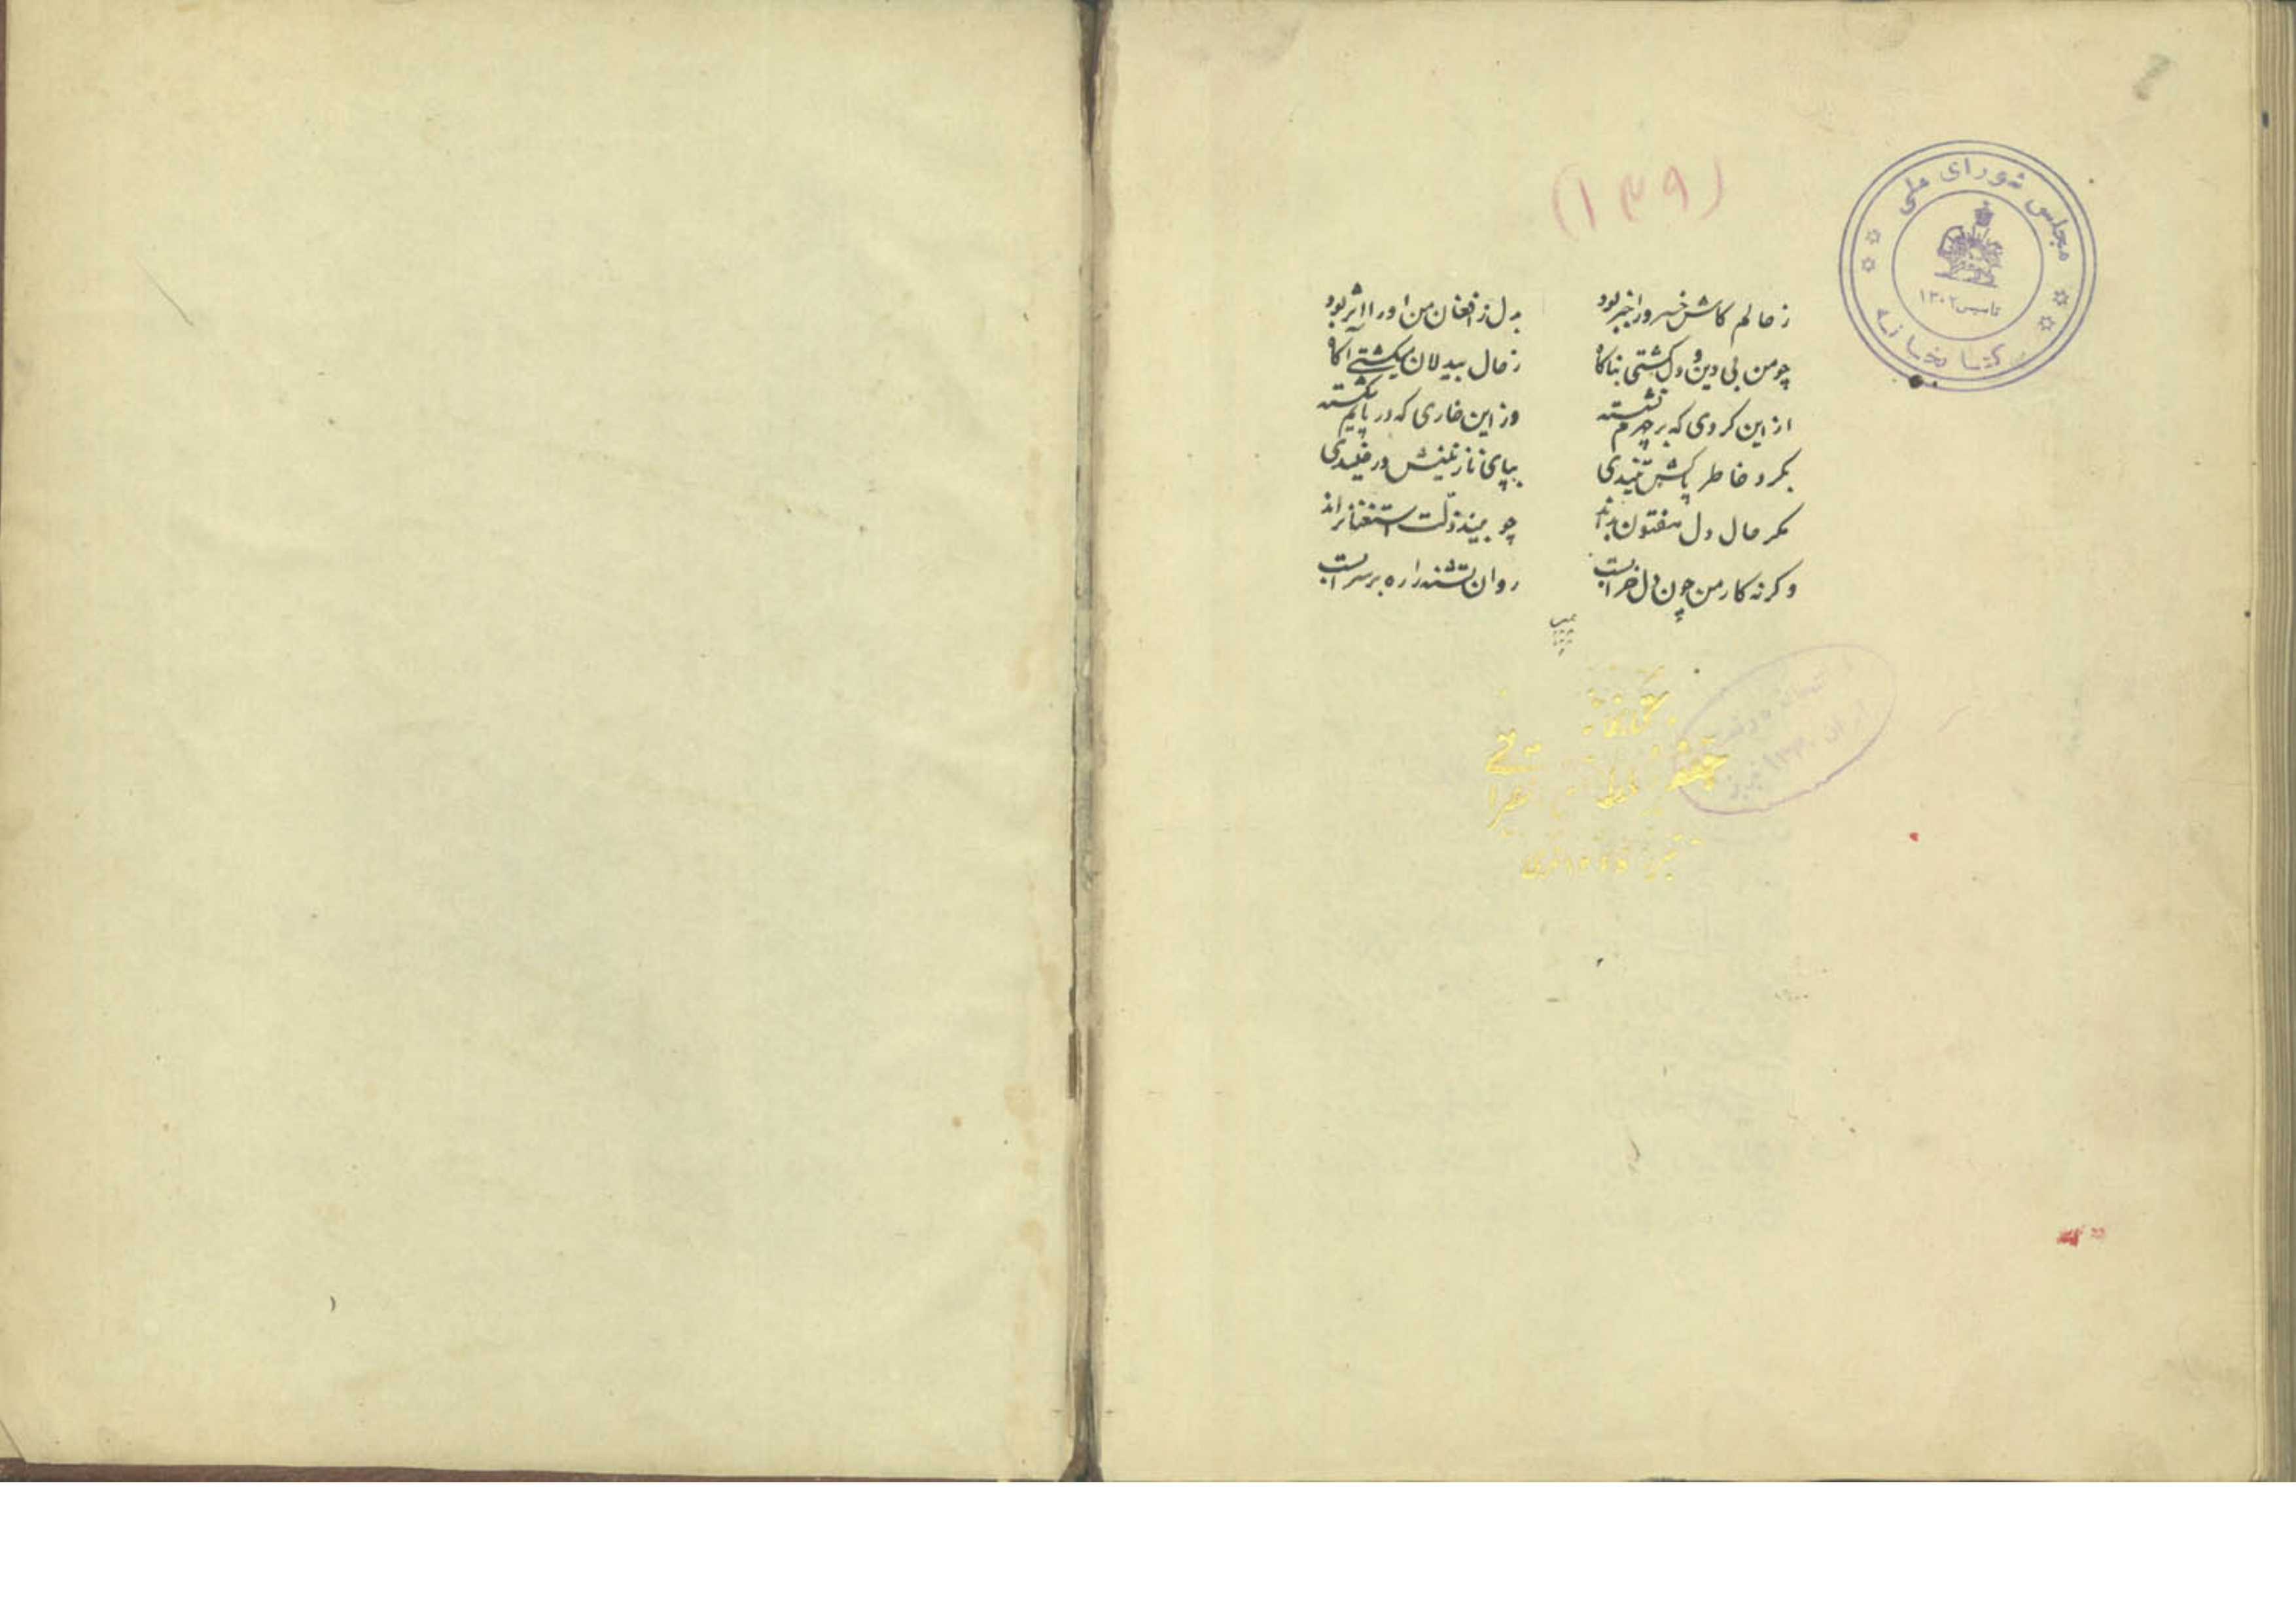 (۱۳۹)
مجلس شورای ملی
تاسیس ۱۳۰۲
کتابخانه
ز حالم کاش خسرو را خبر بود بدل ز افغان من او را اثر بود
چو من بی دین و دل گشتی بناگاه ز حال بیدلان میگشتی آگاه
از این کردی که بر چهرم نشسته وز این خاری که در پایم شکسته
بکرد خاطر پاکش تنیدی بپای نازنینش در خلیدی
مکر حال دل مفتون بداند چو بیند ذلت استغنا براند
وکرنه کار من چون دل خرابست روان تشنه را ره بر سرابست
کتابخانه
جعفر سلطان القرائی
تبریز
ایران ۱۳۳۰ تبریز